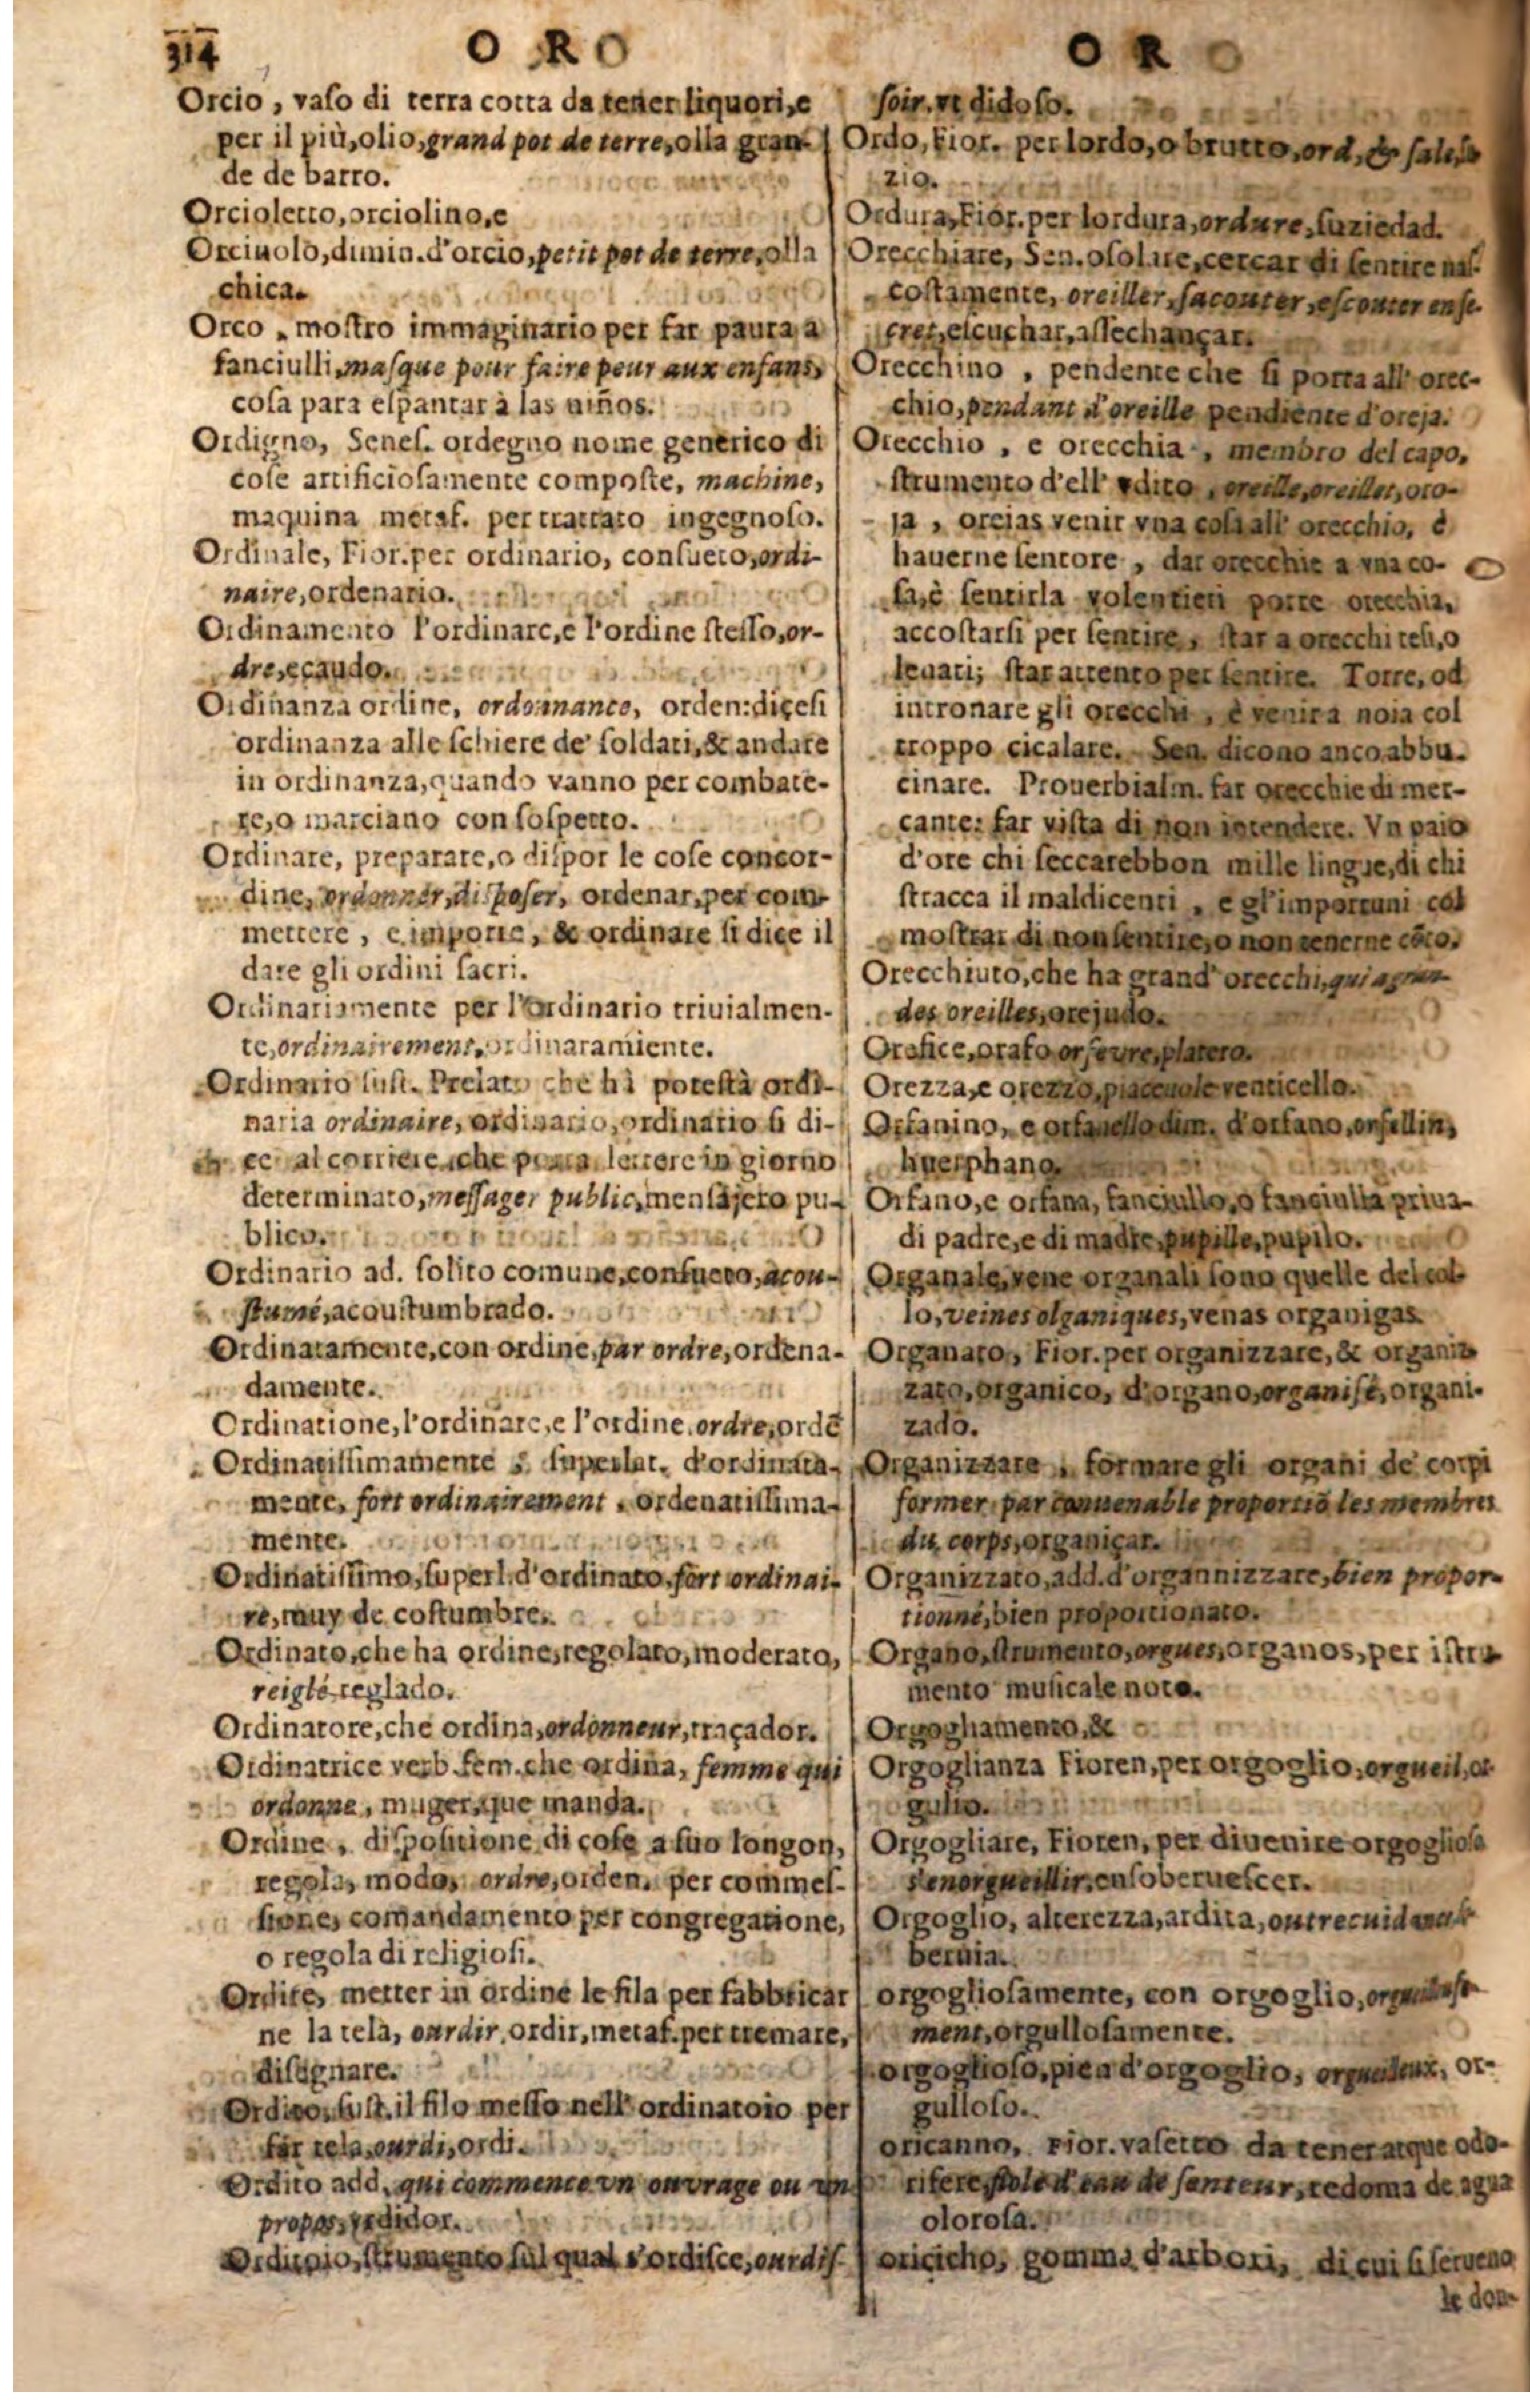 314
O R O
O R O
Orcio, vaſo di terra cotta da tener liquori,e
per il più,olio,grand pot de terre,olla gran-
de de barro.
Orcioletto,orciolino,e
Orciuolo,dimin.d'orcio,petit pot de terre,olla
chica.
Orco, moſtro immaginario per far paura a
fanciulli,maſque pour faire peur aux enfans,
coſa para eſpantar à las niños.
Ordigno, Seneſ. ordegno nome generico di
coſe artificioſamente compoſte, machine,
maquina metaf. per trattato ingegnoſo.
Ordinale, Fior.per ordinario, conſueto,ordi-
naire,ordenario.
Ordinamento l'ordinare,e l'ordine ſteſſo,or-
dre,ecaudo.
Ordinanza ordine, ordonnance, orden:diceſi
ordinanza alle ſchiere de' ſoldati,& andare
in ordinanza,quando vanno per combate-
re,o marciano con ſoſpetto.
Ordinare, preparare,o diſpor le coſe concor-
dine, ordonner,diſpoſer, ordenar,per com-
mettere, e imporre, & ordinare ſi dice il
dare gli ordini ſacri.
Ordinariamente per l'ordinario triuialmen-
te,ordinairement,ordinaramiente.
Ordinario ſuſt. Prelato che hà poteſtà ordi-
naria ordinaire, ordinario,ordinario ſi di-
ce al corriere,che porta lettere in giorno
determinato,meſſager public,menſajero pu-
blico.
Ordinario ad. ſolito comune,conſueto,acou-
ſtumé,acouſtumbrado.
Ordinatamente,con ordine,par ordre,ordena-
damente.
Ordinatione,l'ordinare,e l'ordine.ordre,ordẽ
Ordinatiſſimamente, ſuperlat. d'ordinata-
mente, fort ordinairement, ordenatiſſima-
mente.
Ordinatiſſimo,ſuperl.d'ordinato,fort ordinai-
re,muy de coſtumbre.
Ordinato,che ha ordine,regolato,moderato,
reiglé,reglado.
Ordinatore,che ordina,ordonneur,traçador.
Ordinatrice verb.fem.che ordina, femme qui
ordonne, muger,que manda.
Ordine, diſpoſitione di coſe a ſuo longon,
regola, modo, ordre,orden, per commeſ-
ſione, comandamento per congregatione,
o regola di religioſi.
Ordire, metter in ordine le fila per fabbricar
ne la tela, ourdir,ordir,metaf.per tremare,
diſegnare.
Ordito,ſuſt.il filo meſſo nell' ordinatoio per
far tela,ourdi,ordi.
Ordito add. qui commence vn ouvrage ou vn
propos, didor.
Orditoio,ſtrumento ſul qual s'ordiſce,ourdiſ-
ſoir.vt didoſo.
Ordo,Fior. per lordo,o brutto,ord,& ſale,
zio.
Ordura,Fior.per lordura,ordure,ſuziedad.
Orecchiare, Sen.oſolare,cercar di ſentire naſ-
coſtamente, oreiller,ſaconter,eſconter en ſe-
cret,eſcuchar,aſſechançar.
Orecchino, pendente che ſi porta all' orec-
chio,pendant d'oreille pendiente d'oreja.
Orecchio, e orecchia, membro del capo,
ſtrumento d'ell' vdito, oreille,oreilles,oto-
ja, oreias venir vna coſa all' orecchio, è
hauerne ſentore, dar orecchie a vna co-
ſa,è ſentirla volentieri porre orecchia,
accoſtarſi per ſentire, ſtar a orecchi teſi,o
leuati; ſtar attento per ſentire. Torre, od
intronare gli orecchi, è venir a noia col
troppo cicalare. Sen. dicono anco abbu-
cinare. Prouerbialm. far orecchie di mer-
cante: far viſta di non intendere. Vn paio
d'ore chi ſeccarebbon mille lingue,di chi
ſtracca il maldicenti, e gl'importuni col
moſtrar di non ſentire,o non tenerne cõto.
Orecchiuto,che ha grand' orecchi,qui a gran-
des oreilles,orejudo.
Orefice,orafo orfevre,platero.
Orezza,e orezzo,piaceuole venticello.
Orfanino, e orfanello dim. d'orfano,orfellin,
huerphano.
Orfano,e orfana, fanciullo,o fanciulla priua-
di padre,e di madre,pupille,pupilo.
Organale,vene organali ſono quelle del col-
lo,veines olganiques,venas organigas.
Organato, Fior.per organizzare,& organiz-
zato,organico, d'organo,organiſé,organi-
zado.
Organizzare, formare gli organi de' corpi
former par conuenable proportiõ les membres
du corps,organiçar.
Organizzato,add.d'organnizzare,bien propor-
tionné,bien proportionato.
Organo,ſtrumento,orgues,organos,per iſtru-
mento muſicale noto.
Orgogliamento,&
Orgoglianza Fioren,per orgoglio,orgueil,or-
gulio.
Orgogliare, Fioren, per divenire orgoglioſo
s'enorgueillir,enſoberueſcer.
Orgoglio, alterezza,ardita,outrecuidance
beruia.
orgoglioſamente, con orgoglio,
ment,orgulloſamente.
orgoglioſo,pien d'orgoglio, orgueileux, or-
gulloſo.
oricanno, Fior.vaſetto da tener atque odo-
rifere,fiole d'eau de ſenteur,redoma de agua
oloroſa.
oricicho, gomma d'arbori, di cui ſi ſerueno
le don-